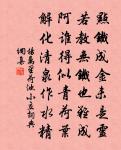 點鐵成金未是靈
若教無鐵也難成
阿誰得似青荷葉
解化清泉作水精
楊萬里荷池小立詞典
網集